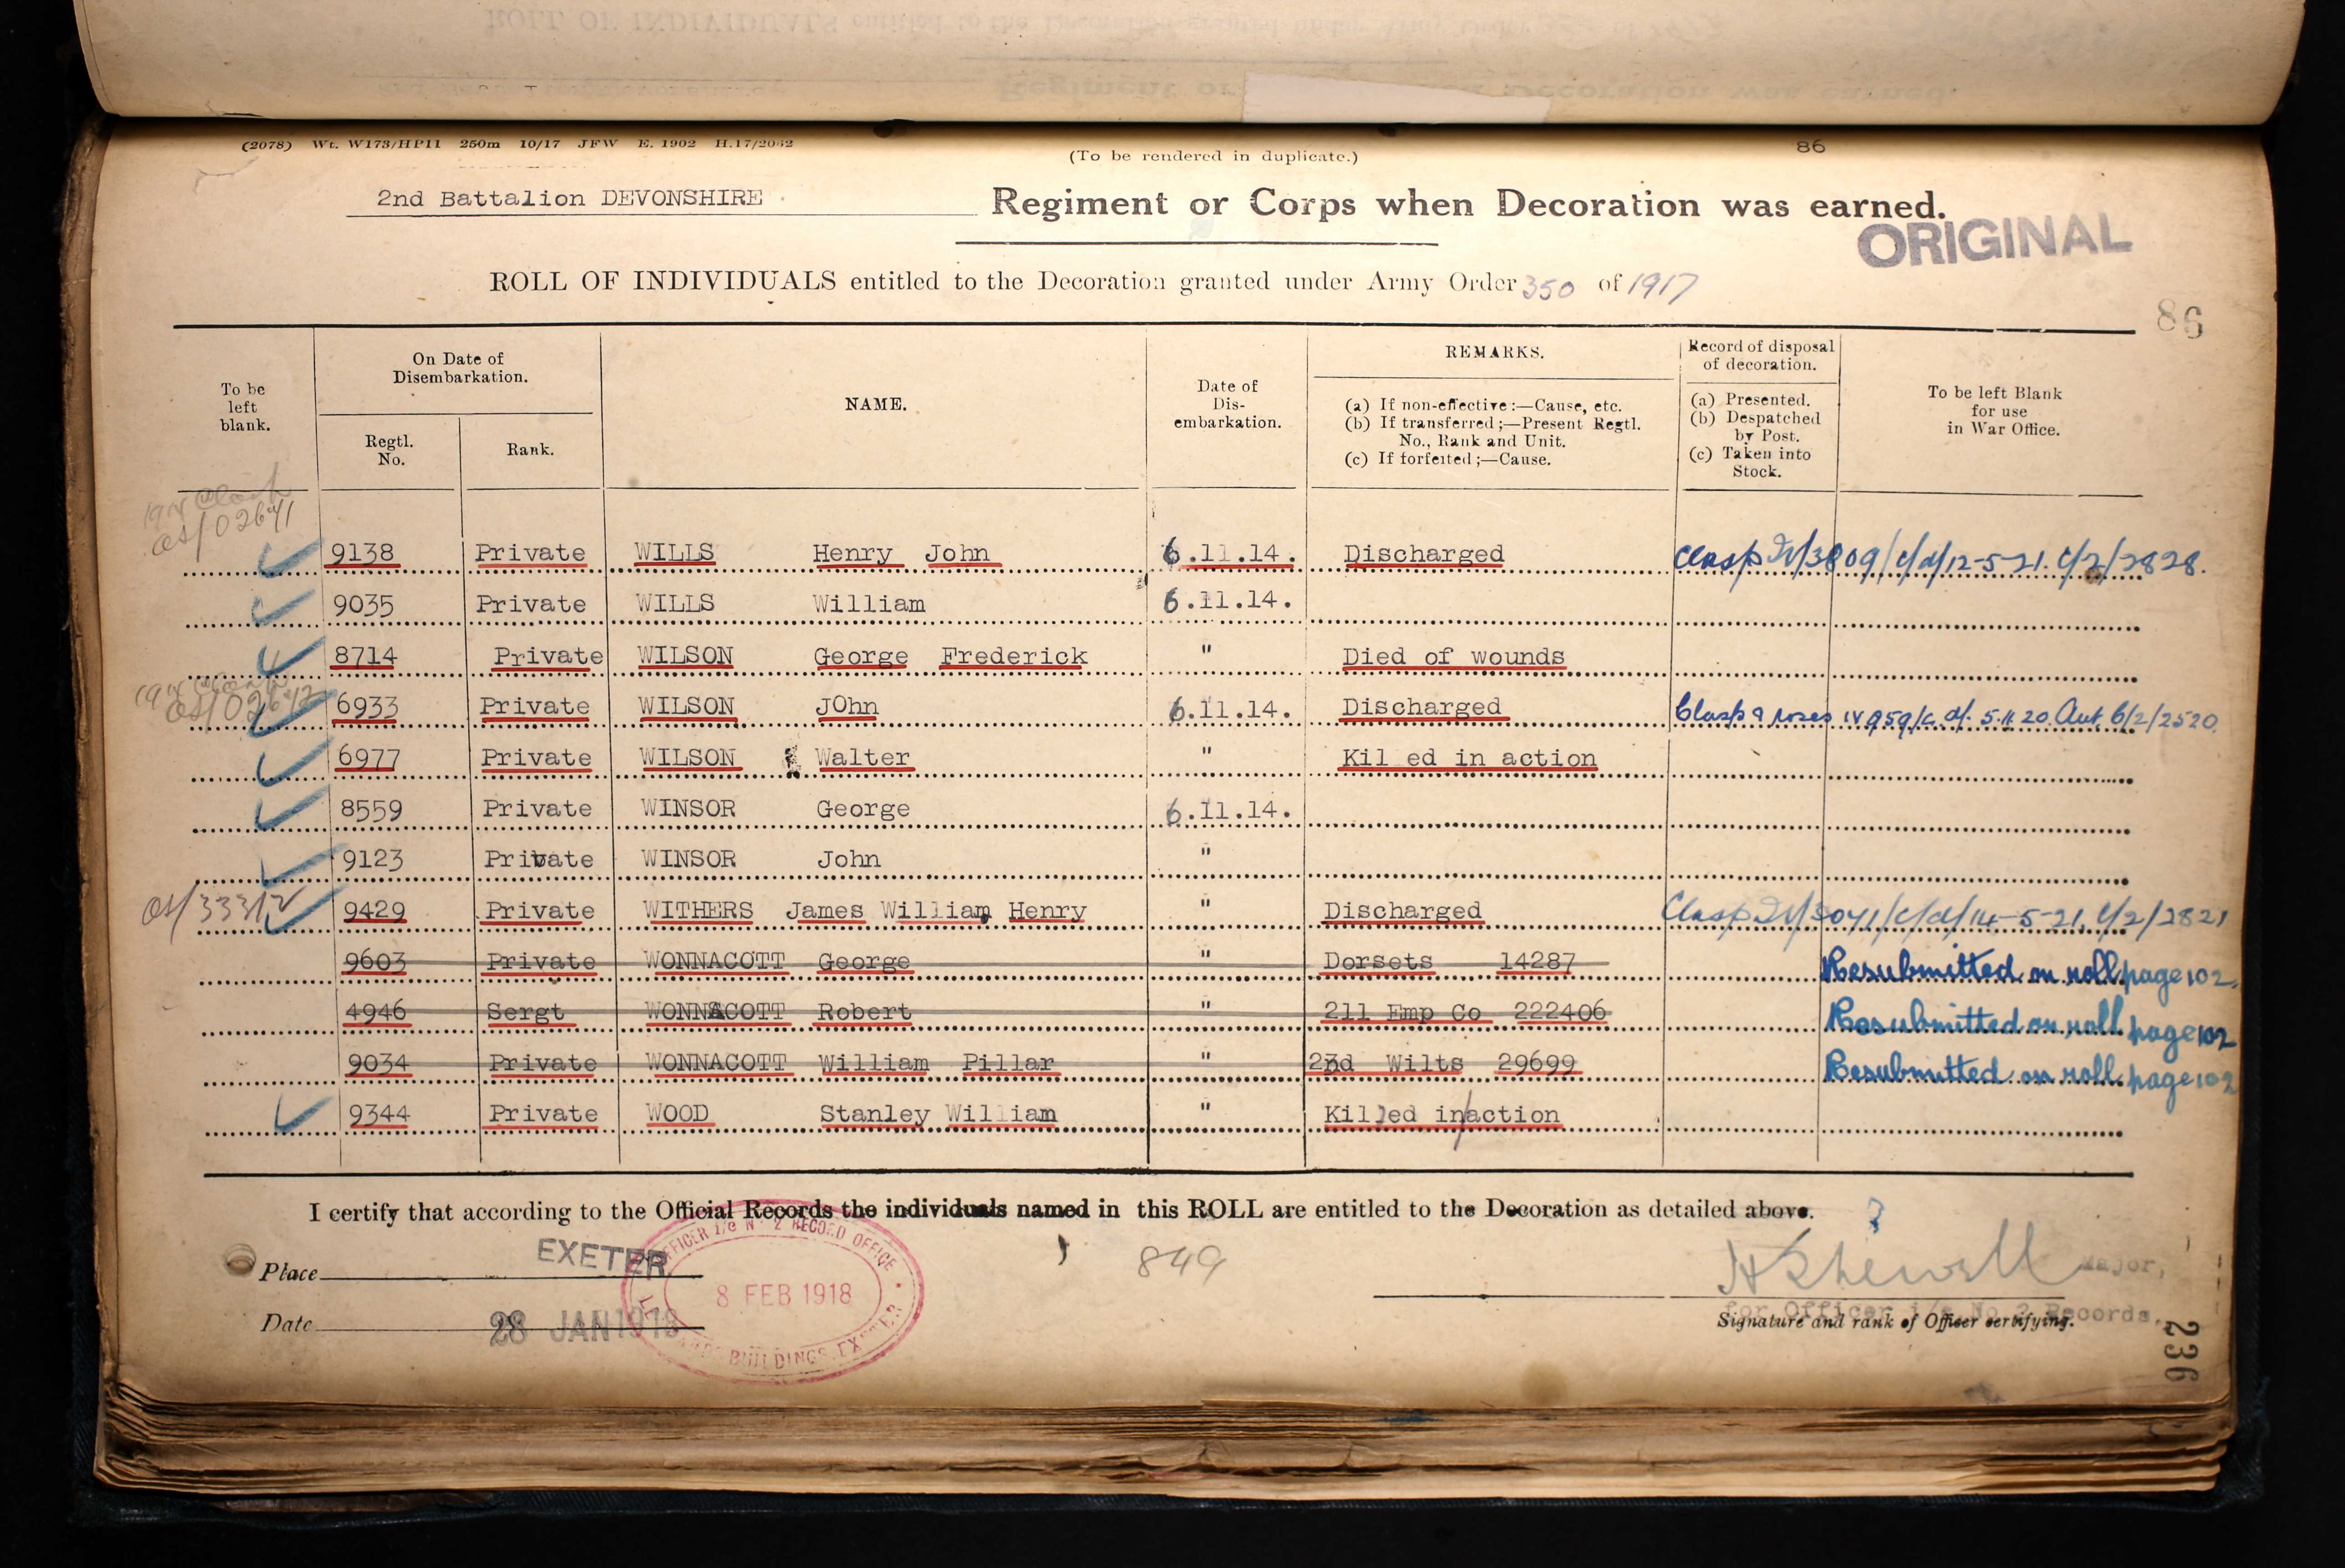 (2078) Wt. W173/HP11 250m 10/17 JFW E. 1902 H.17/2082
(To be rendered in duplicate.)
86
2nd Battalion DEVONSHIRE Regiment or Corps when Decoration was earned.
ORIGINAL
ROLL OF INDIVIDUALS entitled to the Decoration granted under Army Order 350 of 1917
86
To be left blank.
On Date of Disembarkation.
Regtl. No.
Rank.
NAME.
Date of Dis-embarkation.
REMARKS.
(a) If non-effective:—Cause, etc.
(b) If transferred;—Present Regtl. No., Rank and Unit.
(c) If forfeited;—Cause.
Record of disposal of decoration.
(a) Presented.
(b) Despatched by Post.
(c) Taken into Stock.
To be left Blank for use in War Office.
1914 Clasp
02641
9138 Private WILLS Henry John 6.11.14. Discharged Clasp IV/3809/C/d/12-5-21. C/2/2828.
9035 Private WILLS William 6.11.14.
8714 Private WILSON George Frederick " Died of wounds
02642
6933 Private WILSON JOhn 6.11.14. Discharged Clasp & roses IV 959/C. d/. 5.11.20. Aut. 6/2/2520.
6977 Private WILSON Walter " Kil ed in action
8559 Private WINSOR George 6.11.14.
9123 Private WINSOR John "
9429 Private WITHERS James William Henry " Discharged Clasp IV/3041/C/d/14-5-21, C/2/2821
9603 Private WONNACOTT George " Dorsets 14287 Resubmitted on roll page 102.
4946 Sergt WONNACOTT Robert " 211 Emp Co 222406 Resubmitted on roll page 102
9034 Private WONNACOTT William Pillar " 2nd Wilts 29699 Resubmitted on roll page 102
9344 Private WOOD Stanley William " Killed in/action
I certify that according to the Official Records the individuals named in this ROLL are entitled to the Decoration as detailed above.
Place EXETER
849
Major,
for Officer i/c No 2 Records.
Date 28 JAN 1918
OFFICER i/c No 2 RECORD OFFICE
8 FEB 1918
BUILDINGS, EXETER
Signature and rank of Officer certifying.
236